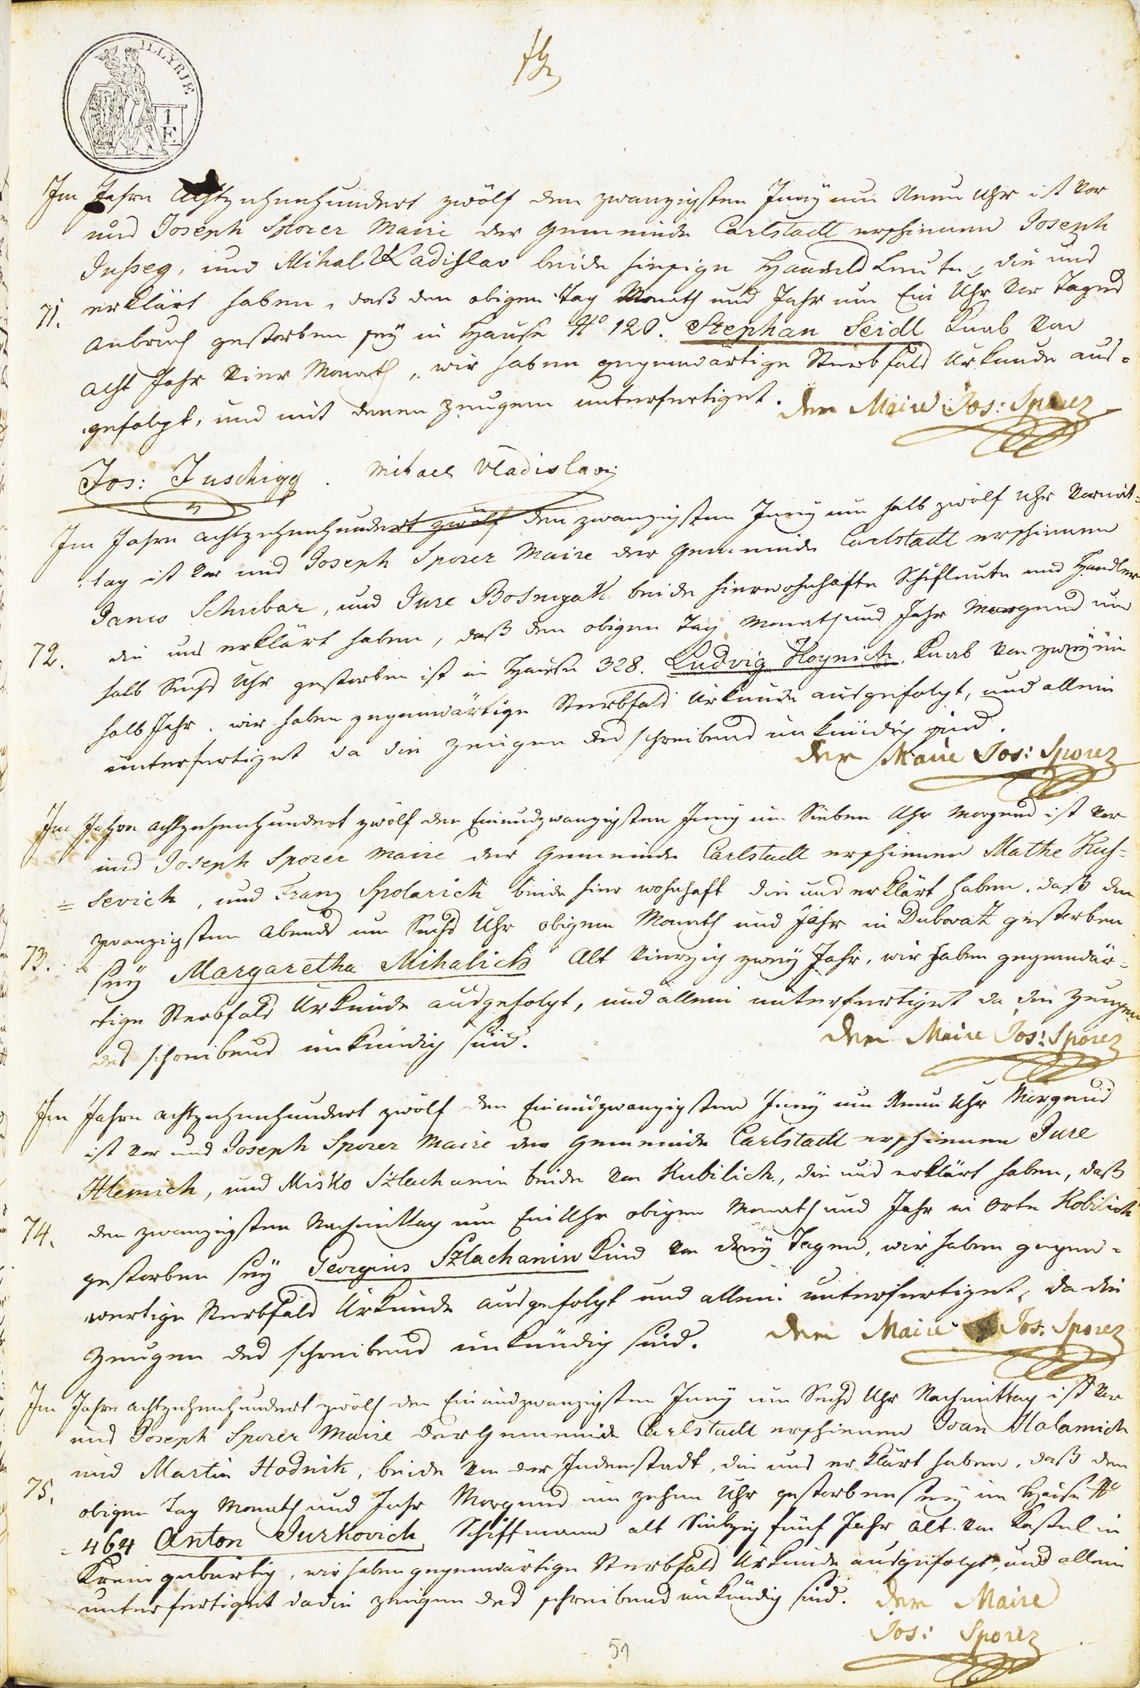 ILLYRIE
1
F
Im Jahre Achtzehenhundert zwölf den zwanzigsten Juny um Neun Uhr ist vor
uns Joseph Sporer Maire der Gemeinde Carlstadt erschienen Joseph
Jusseg, und Mihal Wladislav beide hiesige Handels Leute, die uns
71. erklärt haben, daß den obigen Tag Monath und Jahr um Ein Uhr vor Tages
Anbruch gestorben sey in Hause No 120. Stephan Seidl Knab von
acht Jahr vier Monath, wir haben gegenwärtige Sterbfald Urkunde aus-
gefolgt, und mit denen Zeugen unterfertiget. Der Maire Jos: Sporer
Jos: Juschigg. Mihael Vladislav
Im Jahre achtzehenhundert zwölf den zwanzigsten Juny um halb zwölf Uhr Vormit-
tag ist vor uns Joseph Sporer Maire der Gemeinde Carlstadt erschienen
Janco Schubar, und Jure Bosnyak beide hierwohnhafte Schifleute und Handler
72. die uns erklärt haben, daß den obigen Tag Monath und Jahr Morgens um
halb Sechs Uhr gestorben ist in Hause 328. Ludvig Hoynick Knab von zweyein
halb Jahr. wir haben gegenwärtige Sterbfald Urkunde ausgefolgt, und allein
unterfertiget da die Zeugen des schreibens unkündig sind.
Der Maire Jos: Sporer
Im Jahre achtzehenhundert zwölf den Einundzwanzigsten Juny um Sieben Uhr Morgens ist vor
uns Joseph Sporer Maire der Gemeinde Carlstadt erschienen Mathe Kus-
sevich, und Franz Spolarich beide hier wohnhaft die uns erklärt haben, daß den
zwanzigsten Abends um Sechs Uhr obigen Monath und Jahr in Dubovatz gestorben
73. sey Margaretha Mihalich Alt vierzig zwey Jahr, wir haben gegenwär-
tige Sterbfald Urkunde ausgefolgt, und allein unterfertiget da die Zeugen
des schreibens unkündig sind.
Der Maire Jos: Sporer
Im Jahre achtzehenhundert zwölf den Einundzwanzigsten Juny um Neun Uhr Morgens
ist vor uns Joseph Sporer Maire der Gemeinde Carlstadt erschienen Jure
und Misko Szlachanin beide von Kubilich, die uns erklärt haben, daß
74. den zwanzigsten Nachmittag um Ein Uhr obigen Monath und Jahr in Orte Kobilich
gestorben sey Georgius Szlachanin Kind von drey Tagen, wir haben gegen-
wertige Sterbfald Urkunde ausgefolgt und allein unterfertiget, da die
Zeugen des schreibens unkündig sind. Der Maire Jos: Sporer
Im Jahre achtzehenhundert zwölf den Einundzwanzigsten Juny um Sechs Uhr Nachmittag ist vor
uns Joseph Sporer Maire der Gemeinde Carlstadt erschienen Ivan Malamich
und Martin Hodnik, beide von der Innenstadt, die uns erklärt haben, daß den
75. obigen Tag Monath und Jahr Morgens um zehen Uhr gestorben sey im Hause No
464 Anton Jurkovich Schiffmann alt Siebzig fünf Jahr alt von Kostel in
Krein gebürtig, wir haben gegenwärtige Sterbfald Urkunde ausgefolgt, und allein
unterfertiget da die Zeugen des schreibens unkündig sind. Der Maire
Jos: Sporer
51